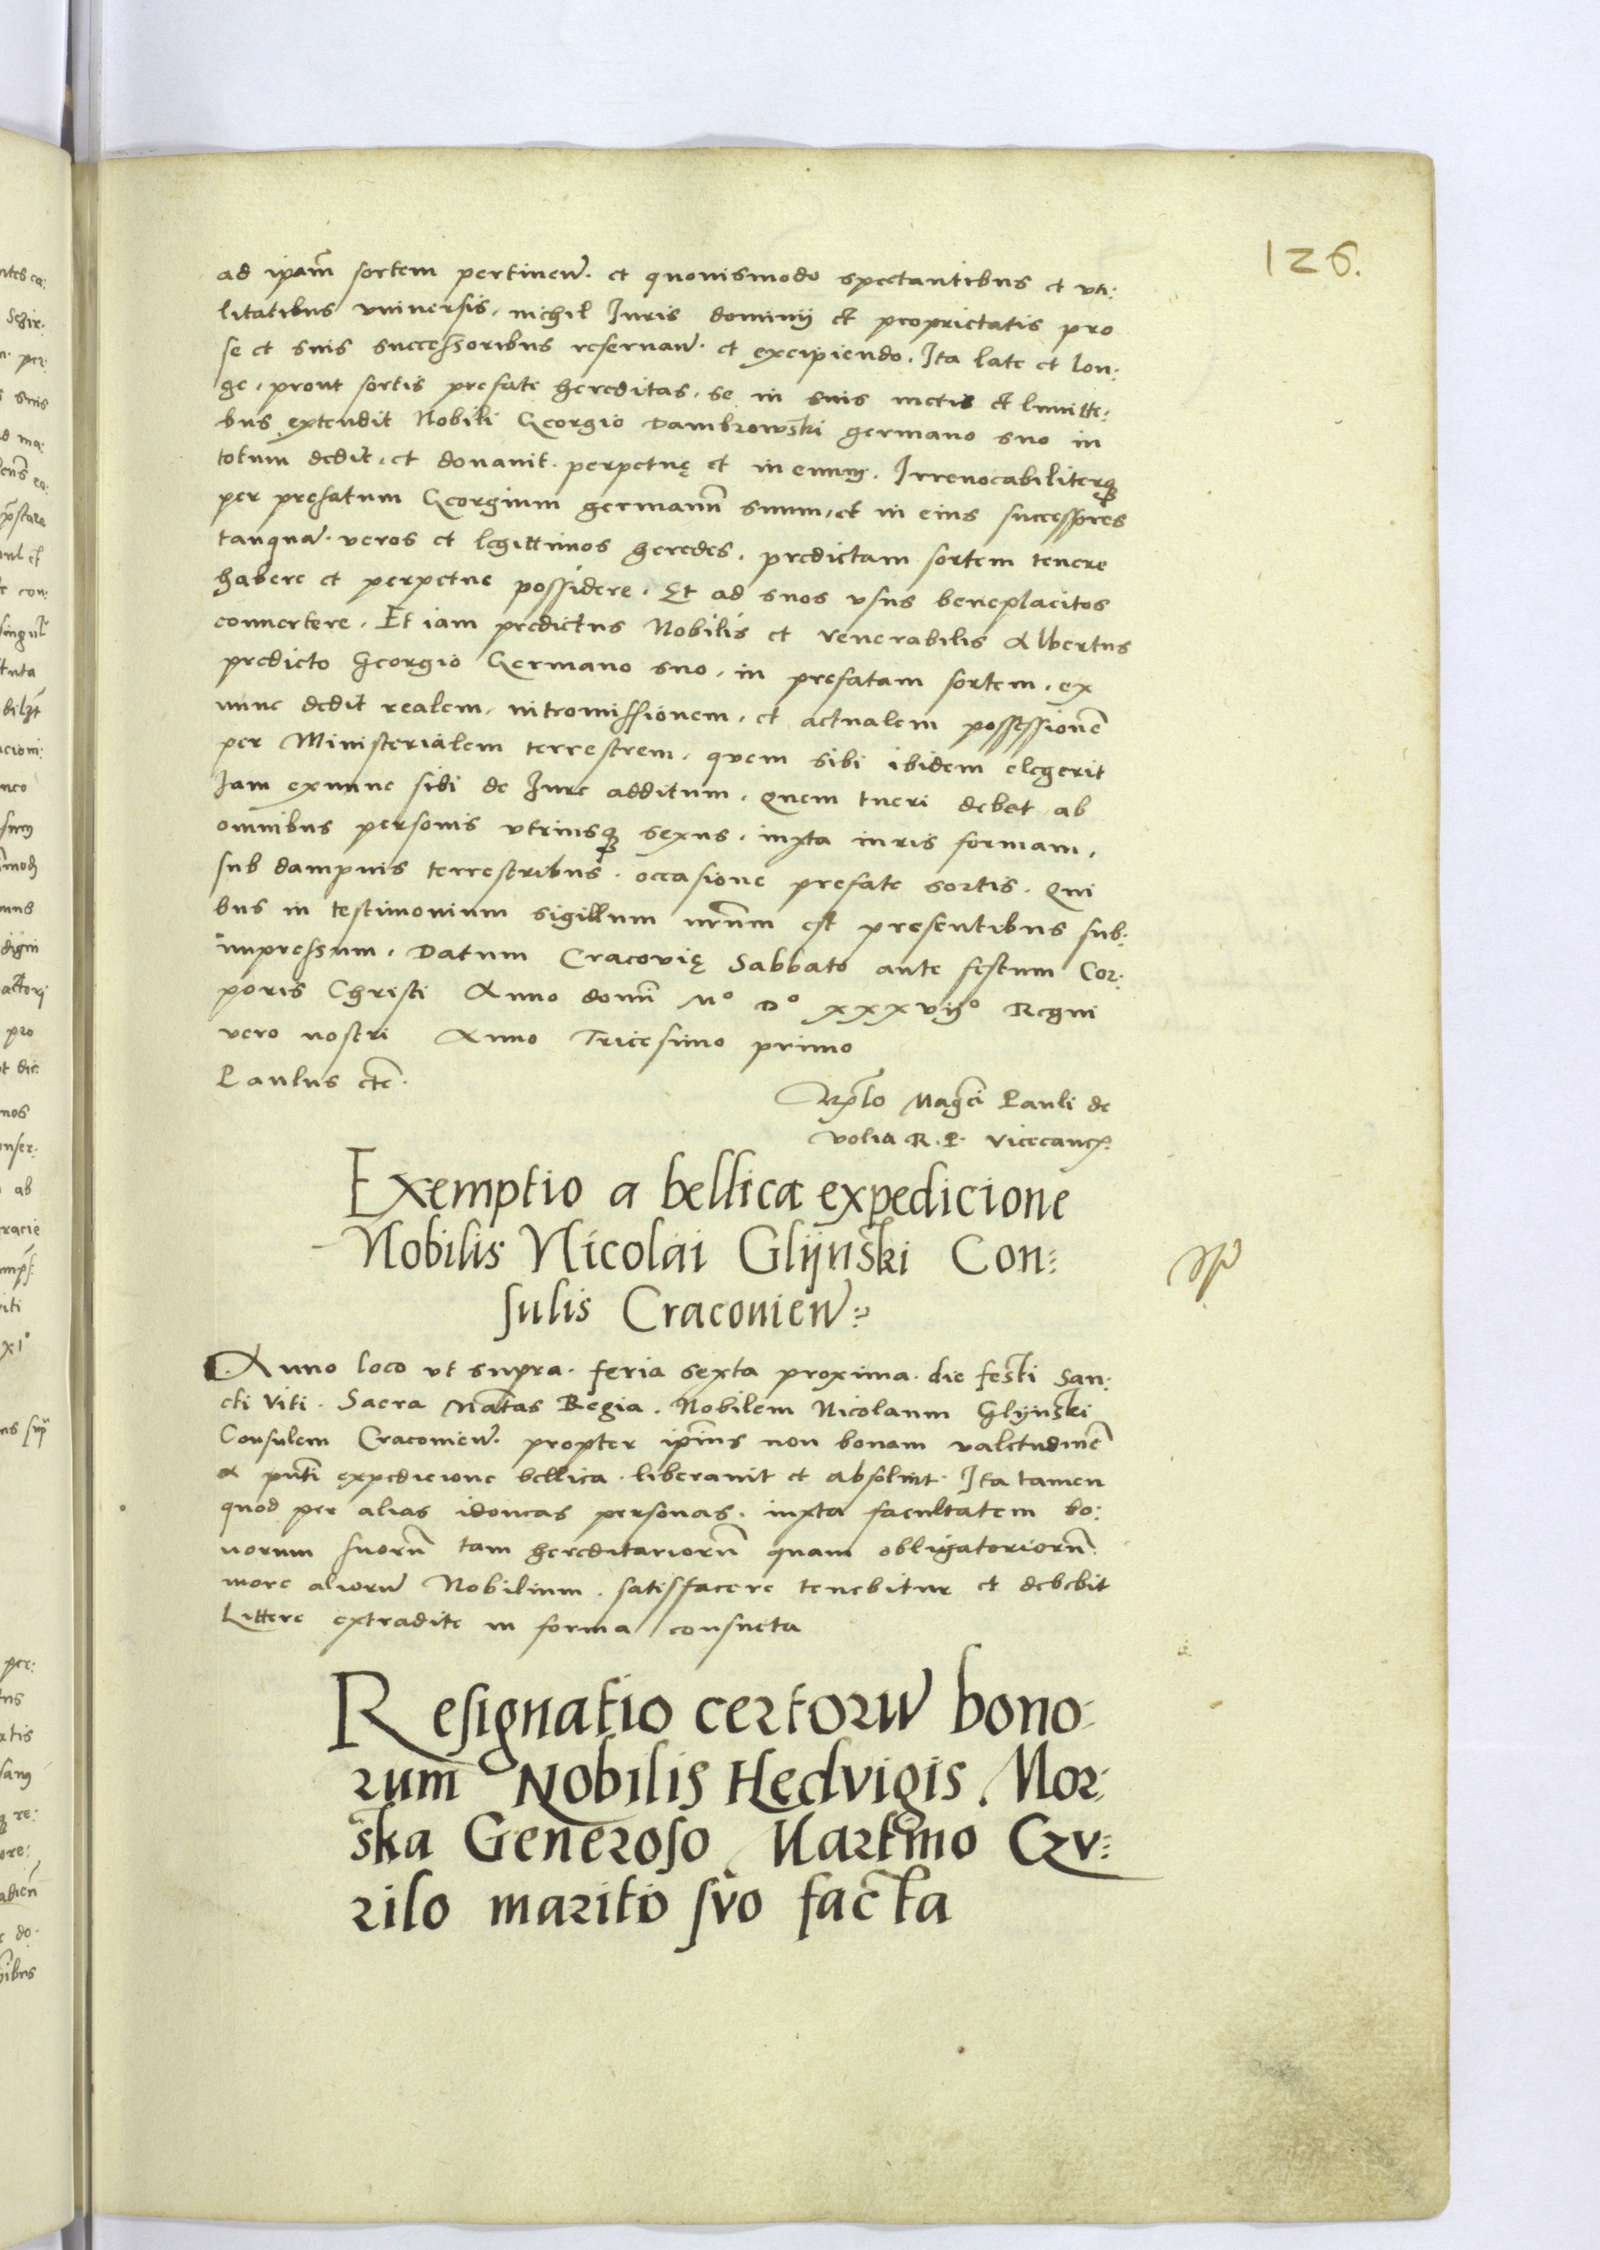 126.
ad ipam̄ sortem pertineñ. et quouismodo spectantibus et vti:
litatibus vniuersis, nichil Iuris dominij et proprietatis pro
se et suis successoribus reseruañ. et excipiendo. Ita late et lon:
ge, prout sortis prefate hereditas, se in suis metis et limitte:
bus extendit Nobili Georgio Dambrowski germano suo in
totum dedit, et donauit. perpetuę et in euum. Irreuocabiliterq;
per prefatum Georgium germanū suum, et in eius successores
tanquā. veros et legittimos heredes, predictam sortem tenere
habere et perpetue possidere. Et ad suos vsus beneplacitos
conuertere. Et iam predictus Nobilis et venerabilis Albertus
predicto Georgio Germano suo, in prefatam sortem, ex
nunc dedit realem, intromissionem, et actualem possessionē
per Ministerialem terrestrem, quem sibi ibidem elegerit
Iam exnunc sibi de Iure additum, Quem tueri debet ab
omnibus personis vtriusq; sexus, iuxta iuris formam,
sub dampnis terrestribus, occasione prefate sortis. Qui
bus in testimonium sigillum nrūm est presentibus sub:
impressum. Datum Cracovię Sabbato ante festum Cor:
poris Christi Anno domī Mº Dº xxxvijº Regni
vero nostri Anno Tricesimo primo
Paulus etc̄.
Rełо Magcī Pauli de
volia R. P. Vicecanc.
Exemptio a bellica expedicione
Nobilis Nicolai Glijnski Con:
sulis Cracouieñ:
Anno loco vt supra. feria sexta proxima. die festi San:
cti Viti. Sacra Matas Regia. Nobilem Nicolaum Glijnski
Consulem Cracouieñ. propter ipīus non bonam valetudinē
a pn̄ti expedicione bellica. liberauit et absoluit. Ita tamen
quod per alias idoneas personas. iuxta facultatem bo:
norum suorū tam hereditariorū quam obligatoriorū
more aliorū Nobilium. satisfacere tenebitur et debebit
Littere extradite in forma consueta
Resignatio certorū bono:
rum Nobilis Hedvigis Mor:
ska Generoso Martino Czu:
rilo marito suo facta